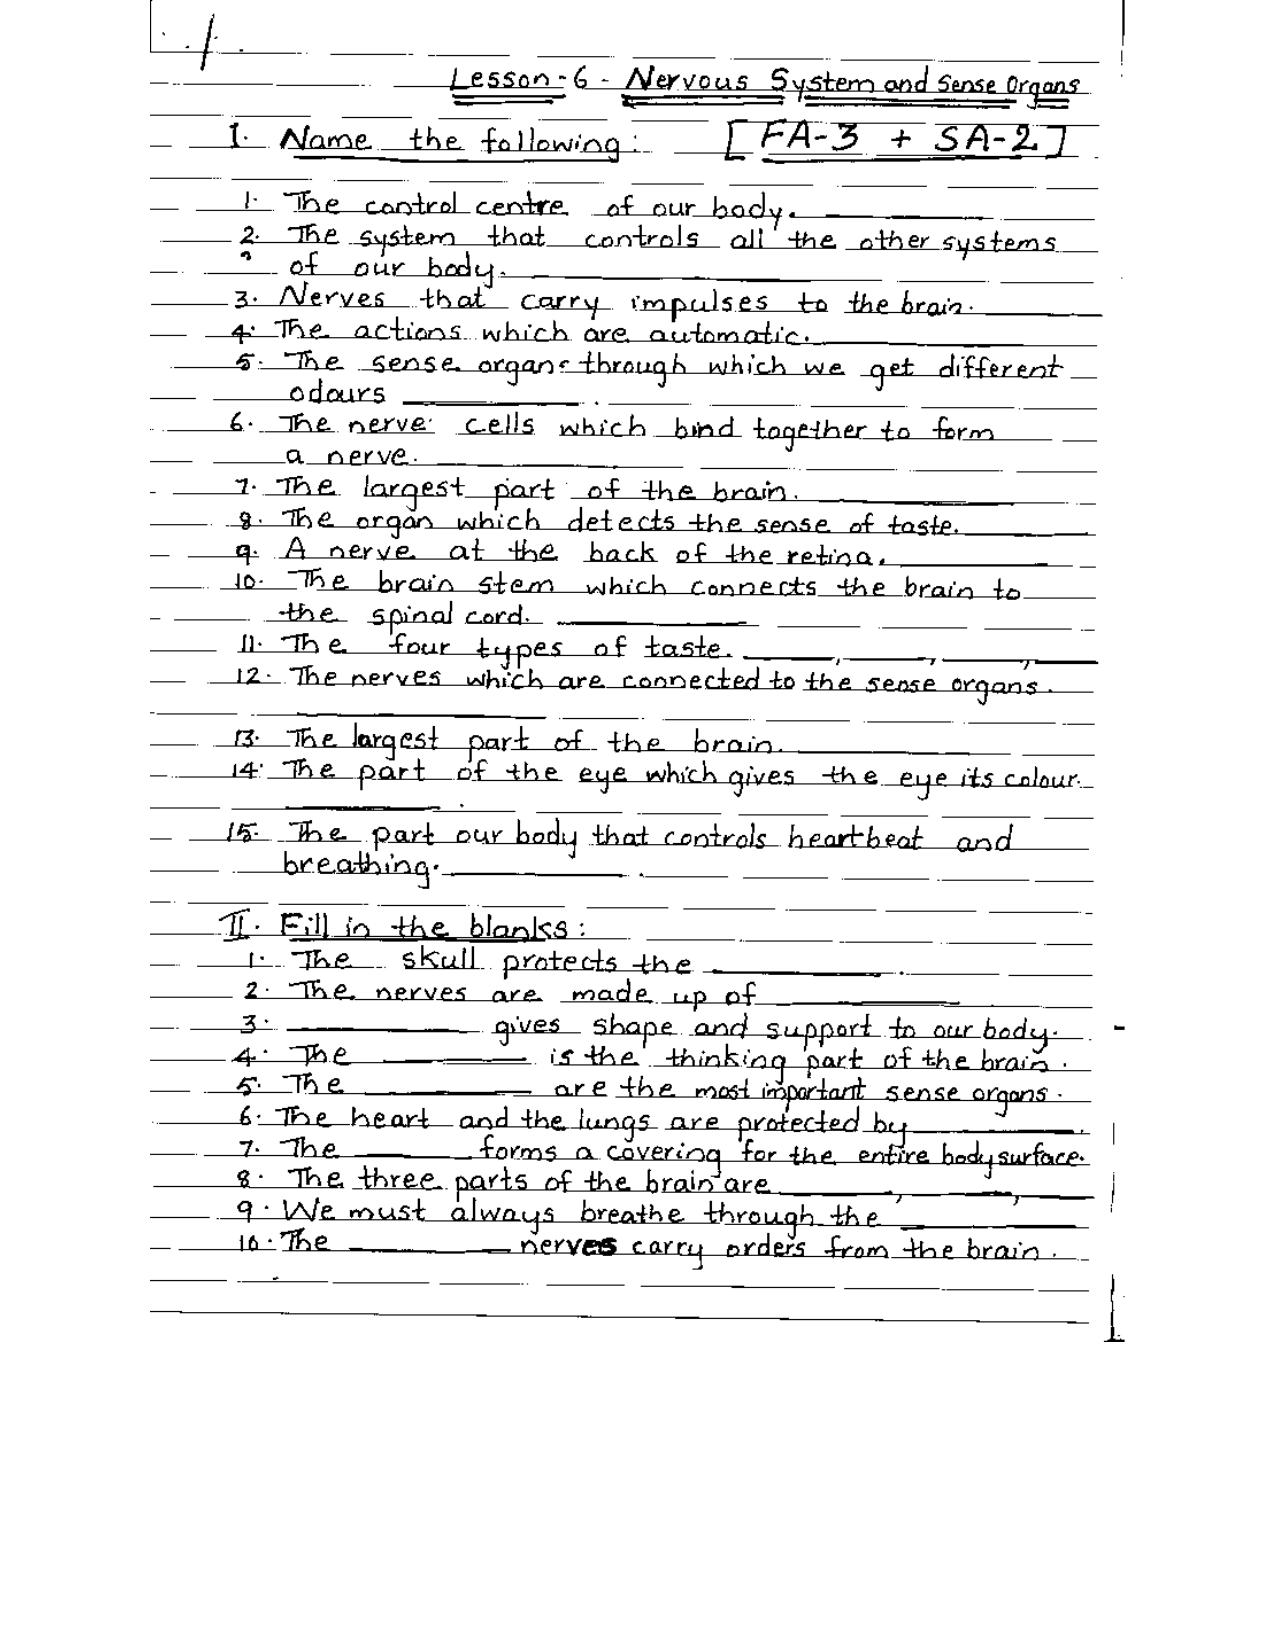 Lesson-6 - Nervous System and Sense Organs
I. Name the following: [FA-3 + SA-2]
1. The control centre of our body.
2. The system that controls all the other systems
of our body.
3. Nerves that carry impulses to the brain.
4. The actions which are automatic.
5. The sense organs through which we get different
odours
6. The nerve cells which bind together to form
a nerve.
7. The largest part of the brain.
8. The organ which detects the sense of taste.
9. A nerve at the back of the retina.
10. The brain stem which connects the brain to
the spinal cord.
11. The four types of taste. , , ,
12. The nerves which are connected to the sense organs.
13. The largest part of the brain.
14. The part of the eye which gives the eye its colour.
15. The part our body that controls heartbeat and
breathing.
II. Fill in the blanks:
1. The skull protects the .
2. The nerves are made up of
3. gives shape and support to our body.
4. The is the thinking part of the brain.
5. The are the most important sense organs.
6. The heart and the lungs are protected by .
7. The forms a covering for the entire body surface.
8. The three parts of the brain are , ,
9. We must always breathe through the
10. The nerves carry orders from the brain.